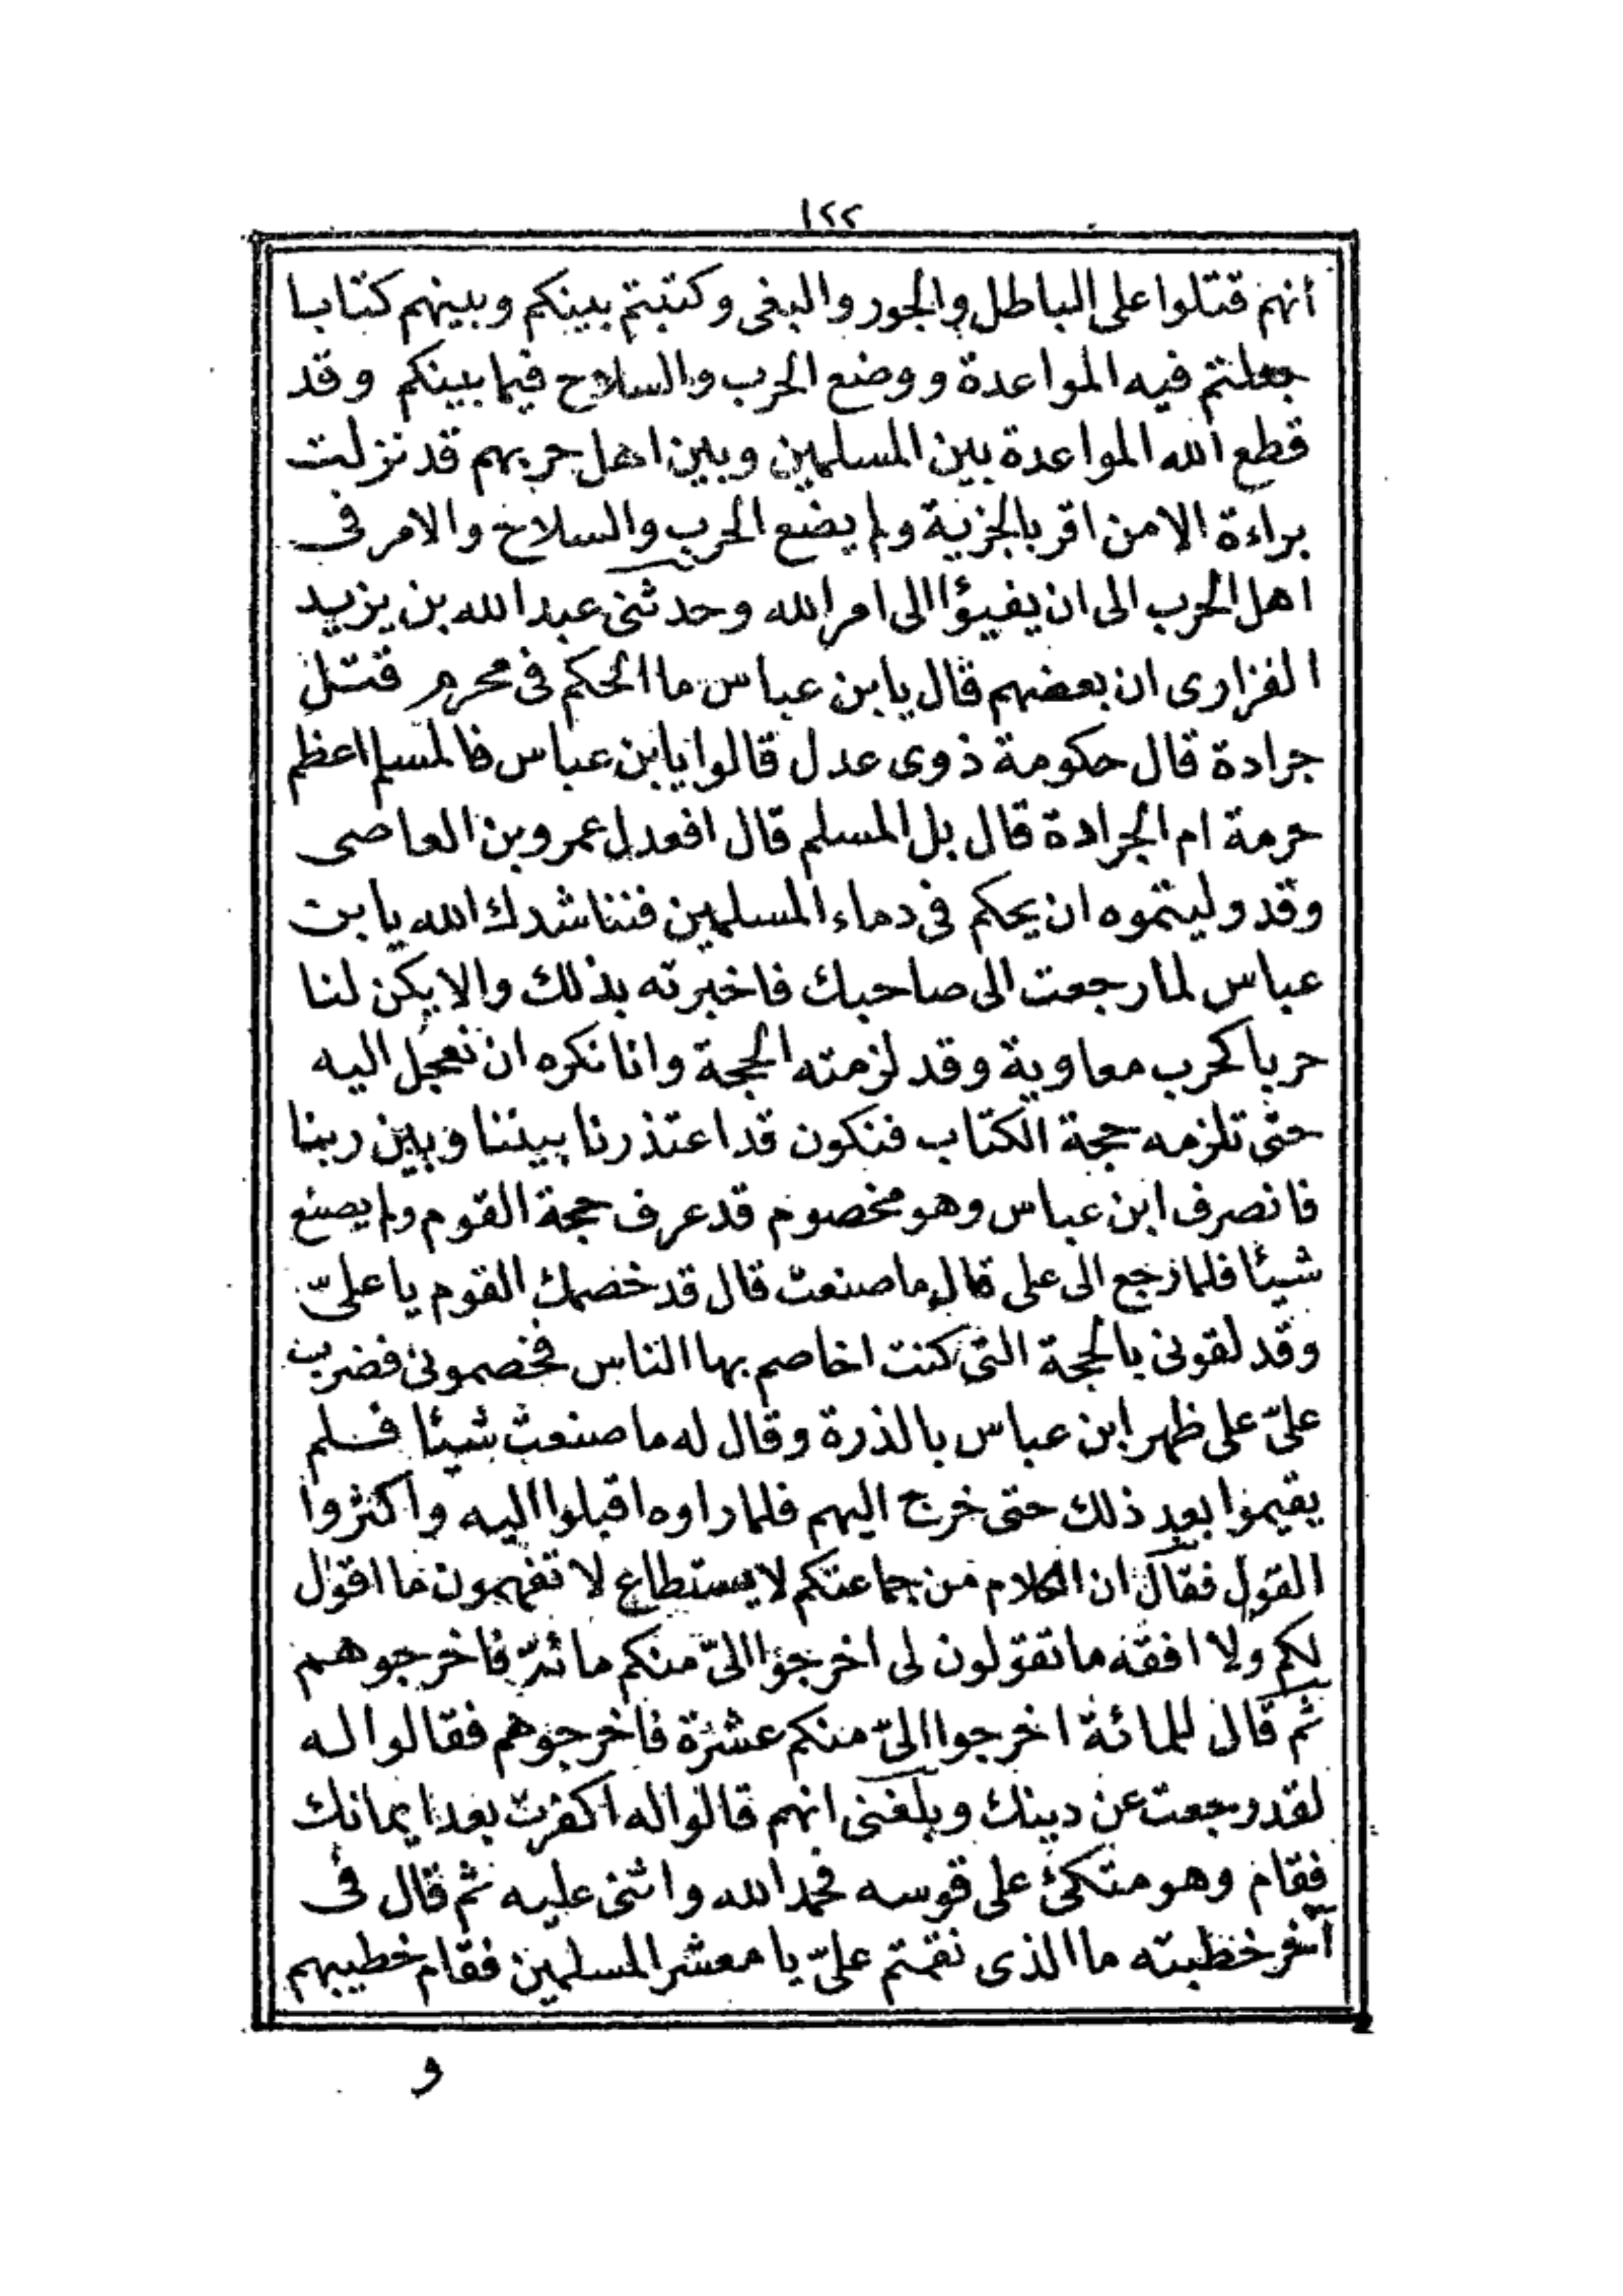 ١٢٢
انهم قتلوا على الباطل والجور والبغى وكتبتم بينكم وبينهم كتابا
جعلتم فيه المواعدة ووضع الحرب والسلاح فيما بينكم وقد
قطع الله المواعدة بين المسلمين وبين اهل حربهم قد نزلت
براءة الا من اقر بالجزية ولم يضع الحرب والسلاح والامر فى
اهل الحرب الى ان يفيؤا الى امر الله وحدثنى عبد الله بن يزيد
الفزارى ان بعضهم قال يابن عباس ما الحكم فى محرم قتل
جرادة قال حكومة ذوى عدل قالوا يابن عباس فالمسلم اعظم
حرمة ام الجرادة قال بل المسلم قال افعدل عمرو بن العاصى
وقد وليتموه ان يحكم فى دماء المسلمين فنناشدك الله يابن
عباس لما رجعت الى صاحبك فاخبرته بذلك والا يكن لنا
حربا كحرب معاوية وقد لزمته الحجة وانا نكره ان نعجل اليه
حتى تلزمه حجة الكتاب فنكون قد اعتذرنا بيننا وبين ربنا
فانصرف ابن عباس وهو مخصوم قد عرف حجة القوم ولم يصنع
شيئا فلما رجع الى على قال ما صنعت قال قد خصمك القوم يا علىّ
وقد لقونى بالحجة التى كنت اخاصم بها الناس فخصمونى فضرب
علىّ على ظهر ابن عباس بالذرة وقال له ما صنعت شيئا فلم
يقيموا بعد ذلك حتى خرج اليهم فلما راوه اقبلوا اليه واكثروا
القول فقال ان الكلام من جماعتكم لا يستطاع لا تفهمون ما اقول
لكم ولا افقه ما تقولون لى اخرجوا الىّ منكم مائة فاخرجوهم
ثم قال للمائة اخرجوا الىّ منكم عشرة فاخرجوهم فقالوا له
لقد رجعت عن دينك وبلغنى انهم قالوا له اكفرت بعد ايمانك
فقام وهو متكئ على قوسه فحمد الله واثنى عليه ثم قال فى
آخر خطبته ما الذى نقمتم علىّ يا معشر المسلمين فقام خطيبهم
و